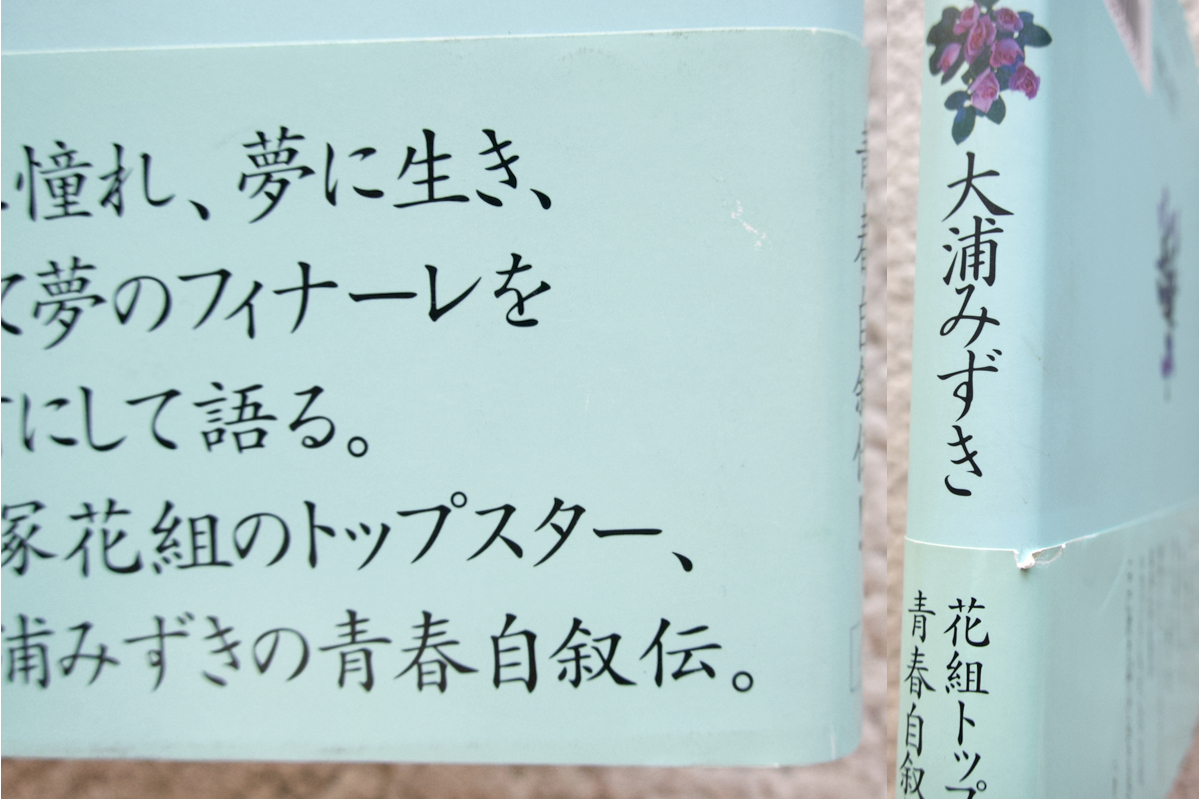 憧れ、夢に生き、
夢のフィナーレを
にして語る。
塚花組のトップスター、
浦みずきの青春自叙伝。
大浦みずき
花組トップ
青春自叙